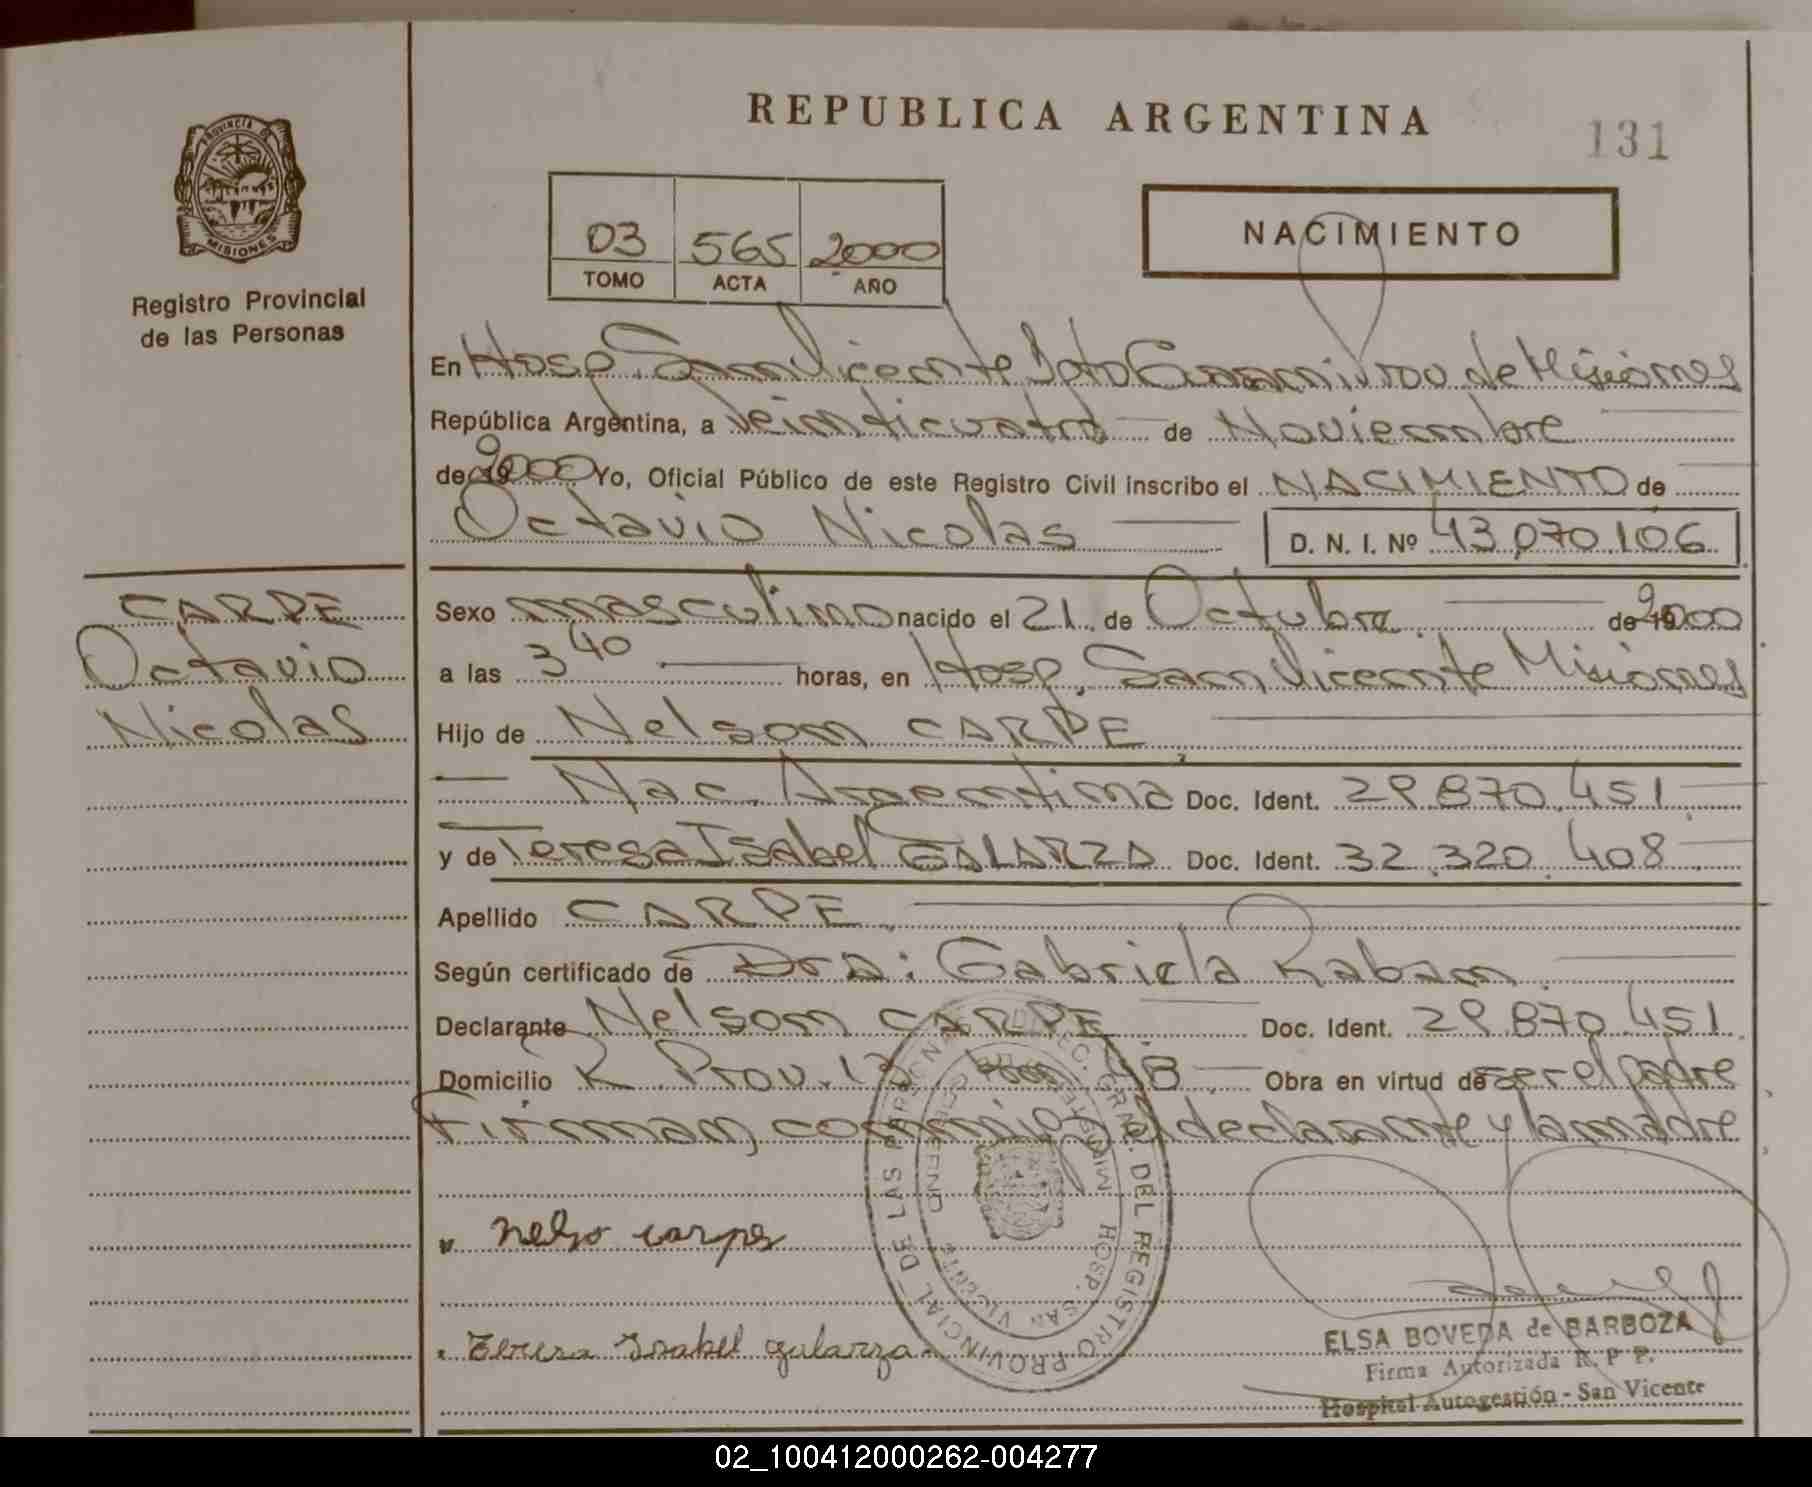 REPUBLICA ARGENTINA
131
PROVINCIA DE
MISIONES
Registro Provincial
de las Personas
03 565 2000
TOMO ACTA AÑO
NACIMIENTO
En Hosp. San Vicente Dpto Guaraní Prov de Misiones
República Argentina, a Veinticuatro de Noviembre
de 19 2000 Yo, Oficial Público de este Registro Civil inscribo el NACIMIENTO de
Octavio Nicolas D. N. I. Nº 43.070.106
CARPE
Octavio
Nicolas
Sexo masculino nacido el 21 de Octubre de 19 2000
a las 3 40 horas, en Hosp. San Vicente Misiones
Hijo de Nelson CARPE
Nac. Argentina Doc. Ident. 29.870.451
y de Teresa Isabel GALARZA Doc. Ident. 32.320.408
Apellido CARPE
Según certificado de Dra: Gabriela Raban
Declarante Nelson CARPE Doc. Ident. 29.870.451
Domicilio R. Prov. 13 Km 48 Obra en virtud de ser el padre
Firman conmigo el declarante y la madre
nelso carpe
Teresa Isabel galarza
DIREC. GRAL. DEL REGISTRO PROVINCIAL DE LAS PERSONAS
MINISTERIO DE GOBIERNO
HOSP. SAN VICENTE
ELSA BOVEDA de BARBOZA
Firma Autorizada R. P. P.
Hospital Autogestión - San Vicente
02_100412000262-004277